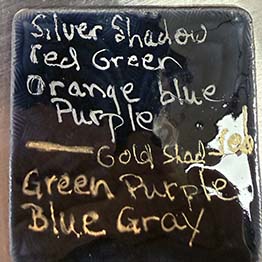 Silver Shadow
red Green
Orange blue
Purple
Gold Shad-
Green Purple
Blue Gray